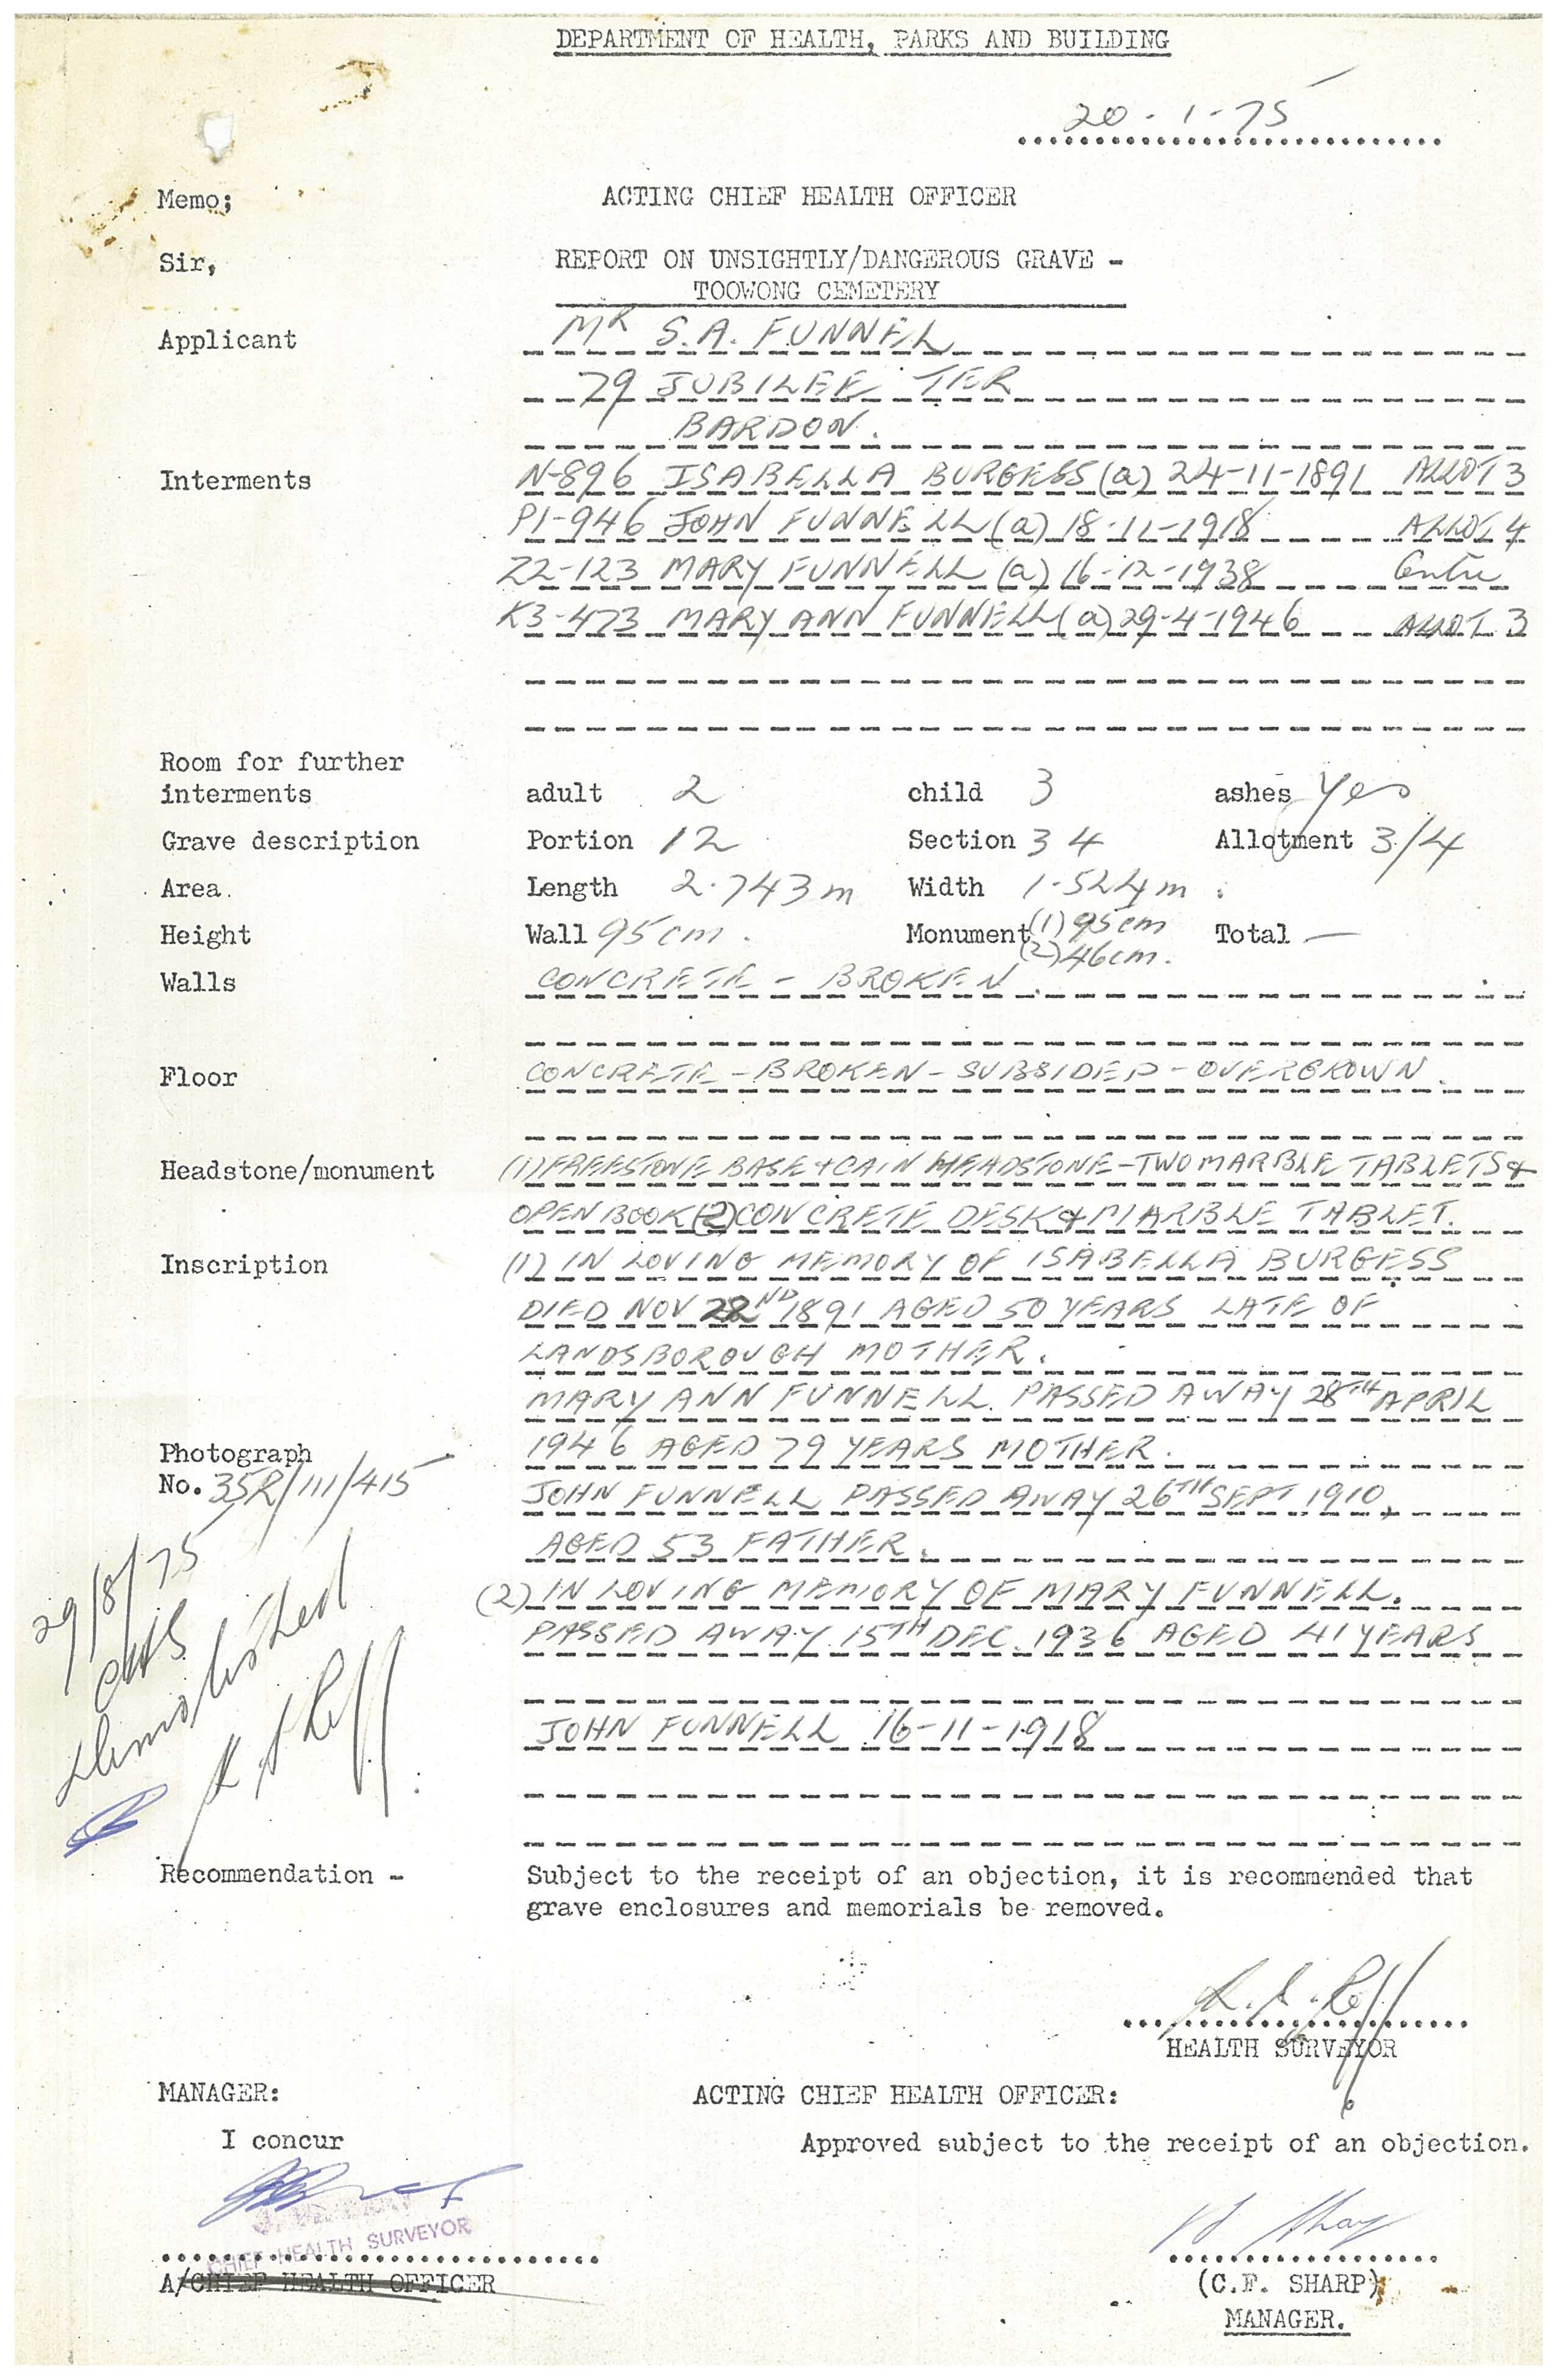 DEPARTMENT OF HEALTH, PARKS AND BUILDING
20-1-75
Memo; ACTING CHIEF HEALTH OFFICER
Sir, REPORT ON UNSIGHTLY/DANGEROUS GRAVE -
TOOWONG CEMETERY
Applicant MR S.A. FUNNEL
79 JUBILEE TER
BARDON.
Interments N-896 ISABELLA BURGESS (a) 24-11-1891 ALLOT 3
P1-946 JOHN FUNNELL (a) 18-11-1918 ALLOT 4
Z2-123 MARY FUNNELL (a) 16-12-1938 Centre
K3-473 MARY ANN FUNNELL (a) 29-4-1946 ALLOT 3
Room for further
interments adult 2 child 3 ashes Yes
Grave description Portion 12 Section 34 Allotment 3/4
Area. Length 2.743m Width 1.524m.
Height Wall 95cm. Monument (1) 95cm Total —
(2) 46cm.
Walls CONCRETE - BROKEN.
Floor CONCRETE - BROKEN - SUBSIDED - OVERGROWN.
Headstone/monument (1) FREESTONE BASE + CAIN HEADSTONE - TWO MARBLE TABLETS &
OPEN BOOK (2) CONCRETE DESK & MARBLE TABLET.
Inscription (1) IN LOVING MEMORY OF ISABELLA BURGESS
DIED NOV 22ND 1891 AGED 50 YEARS LATE OF
LANDSBOROUGH MOTHER.
MARY ANN FUNNELL PASSED AWAY 28TH APRIL
1946 AGED 79 YEARS MOTHER.
Photograph
No. 35R/111/415
JOHN FUNNELL PASSED AWAY 26TH SEPT 1910,
AGED 53 FATHER.
(2) IN LOVING MEMORY OF MARY FUNNELL.
PASSED AWAY 15TH DEC. 1936 AGED 41 YEARS
JOHN FUNNELL 16-11-1918
29/8/75
CHS
Demolished
Recommendation - Subject to the receipt of an objection, it is recommended that
grave enclosures and memorials be removed.
HEALTH SURVEYOR
MANAGER: ACTING CHIEF HEALTH OFFICER:
I concur Approved subject to the receipt of an objection.
CHIEF HEALTH SURVEYOR
A/CHIEF HEALTH OFFICER (C.F. SHARP)
MANAGER.